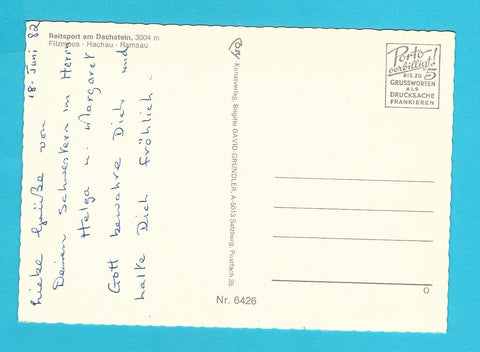 Reitsport am Dachstein, 3004 m
Filzmoos - Hachau - Ramsau
18. Juni 82
Liebe Grüße von
Deinen Schwestern im Herrn
Helga u. Margaret
Gott bewahre Dich und
halte Dich fröhlich.
Kunstverlag, Brigitte DAVID-GRÜNDLER, A-5013 Salzburg, Postfach 35
Porto
verbilligt!
BIS ZU 5
GRUSSWORTEN
ALS
DRUCKSACHE
FRANKIEREN
Nr. 6426